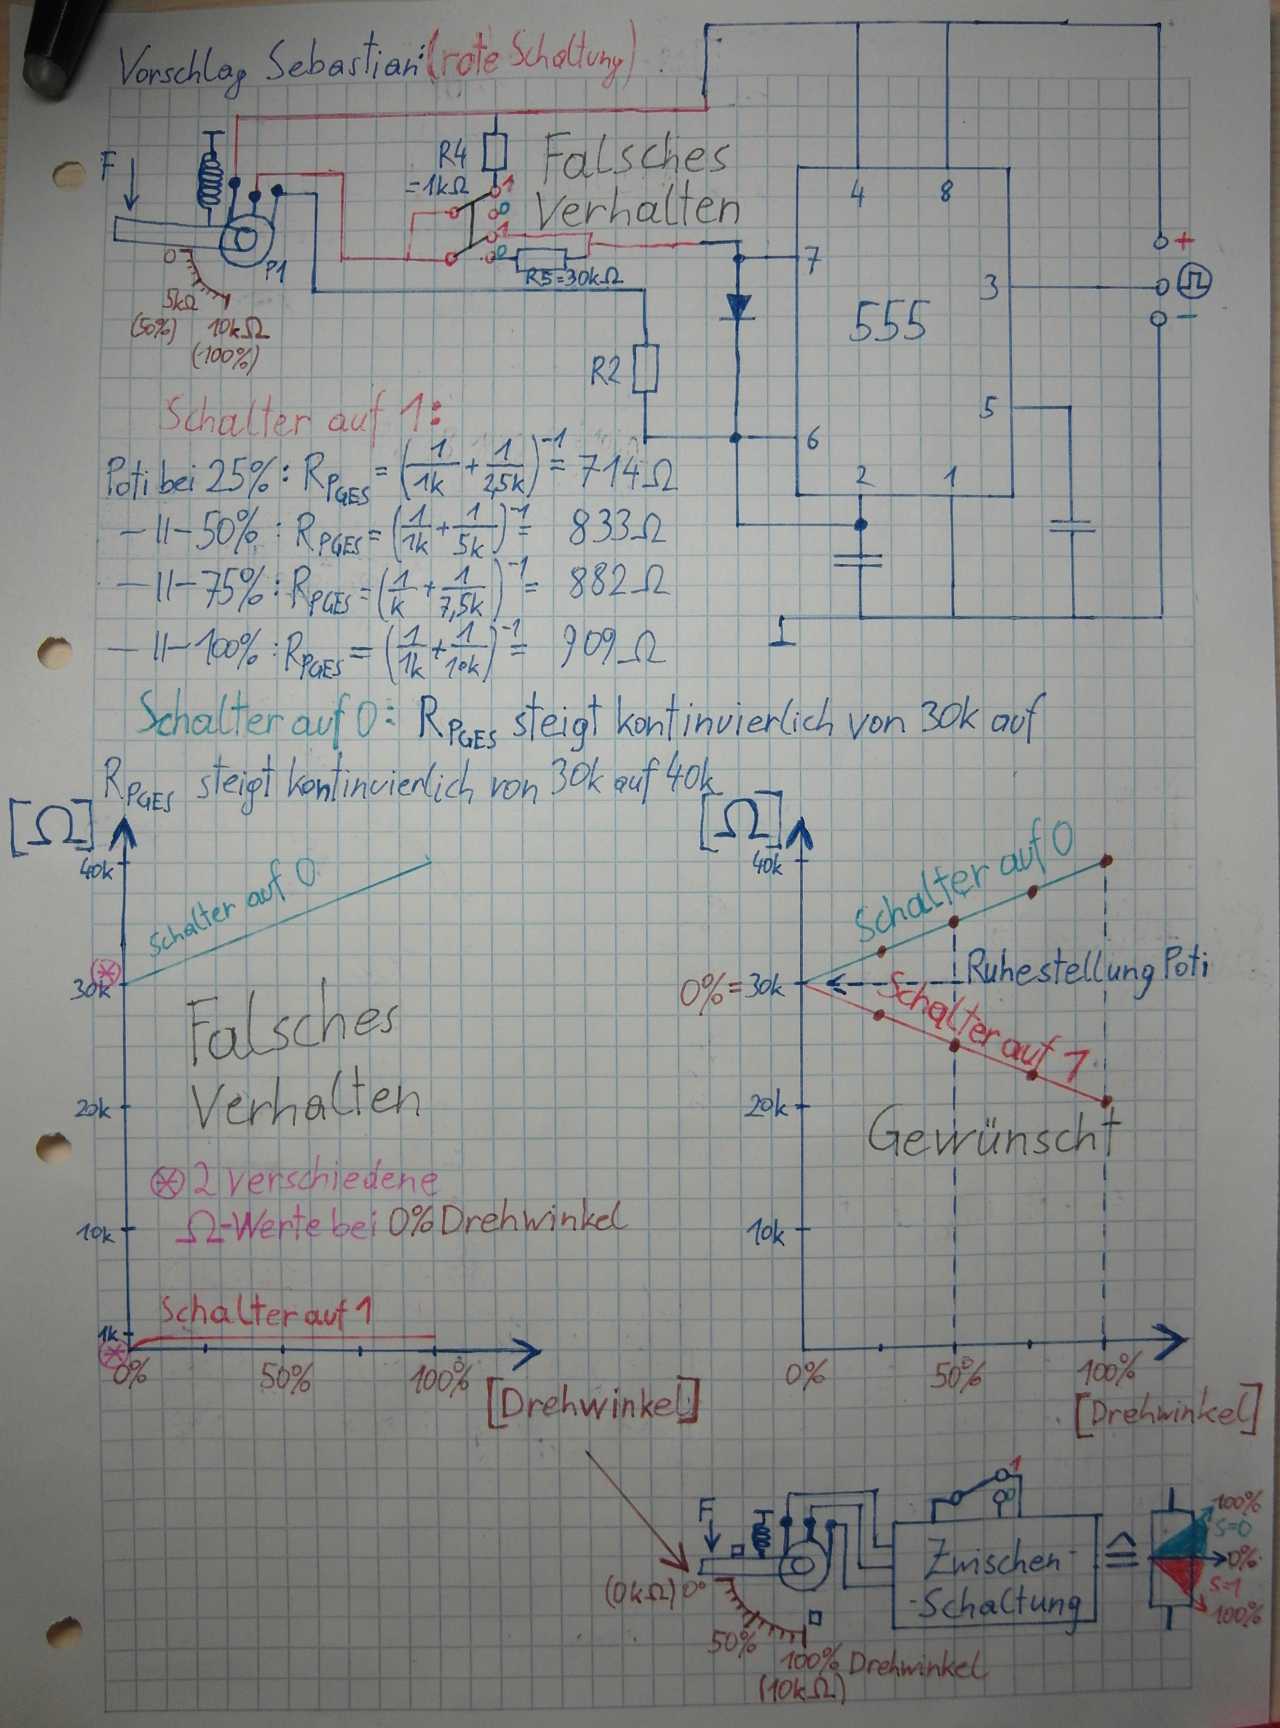 Vorschlag Sebastian: (rote Schaltung)
F
R4
=1kΩ
1
0
1
0
R5=30kΩ
P1
0
5kΩ
(50%)
10kΩ
(100%)
Falsches
Verhalten
4 8
7
3
555
5
6
2 1
+
Ω
−
R2
Schalter auf 1:
Poti bei 25%: R_PGES = (1/1k + 1/2,5k)^-1 = 714Ω
-||- 50%: R_PGES = (1/1k + 1/5k)^-1 = 833Ω
-||- 75%: R_PGES = (1/k + 1/7,5k)^-1 = 882Ω
-||- 100%: R_PGES = (1/1k + 1/10k)^-1 = 909Ω
Schalter auf 0: R_PGES steigt kontinuierlich von 30k auf
R_PGES steigt kontinuierlich von 30k auf 40k
[Ω]
40k
30k
20k
10k
1k
Schalter auf 0
Falsches
Verhalten
⊛ 2 verschiedene
Ω-Werte bei 0% Drehwinkel
Schalter auf 1
0% 50% 100%
[Drehwinkel]
[Ω]
40k
0%=30k
20k
10k
Schalter auf 0
Ruhestellung Poti
Schalter auf 1
Gewünscht
0% 50% 100%
[Drehwinkel]
F
(0kΩ) 0°
50%
100% Drehwinkel
(10kΩ)
1
0
Zwischen-
-Schaltung
≙
100%
S=0
0%
S=1
100%